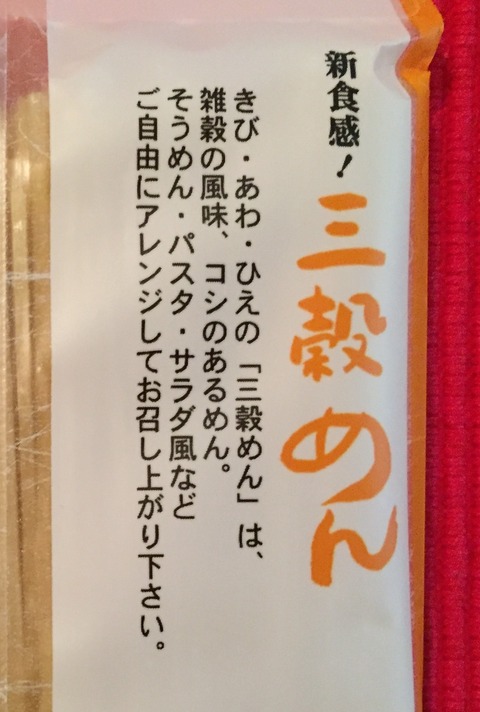 新食感!
三穀めん
きび・あわ・ひえの「三穀めん」は、
雑穀の風味、コシのあるめん。
そうめん・パスタ・サラダ風など
ご自由にアレンジしてお召し上がり下さい。